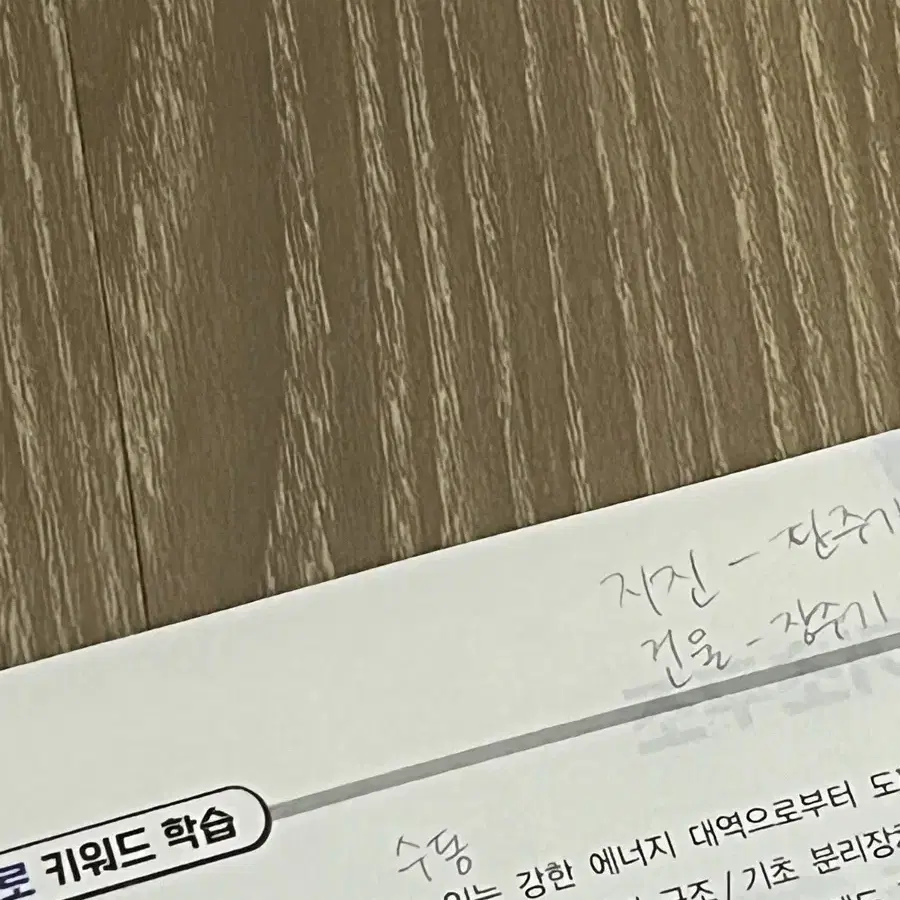 지진 - 단주기
건물 - 장주기
로 키워드 학습
수동
있는 강한 에너지 대역으로부터 도
구조/기초 분리장치